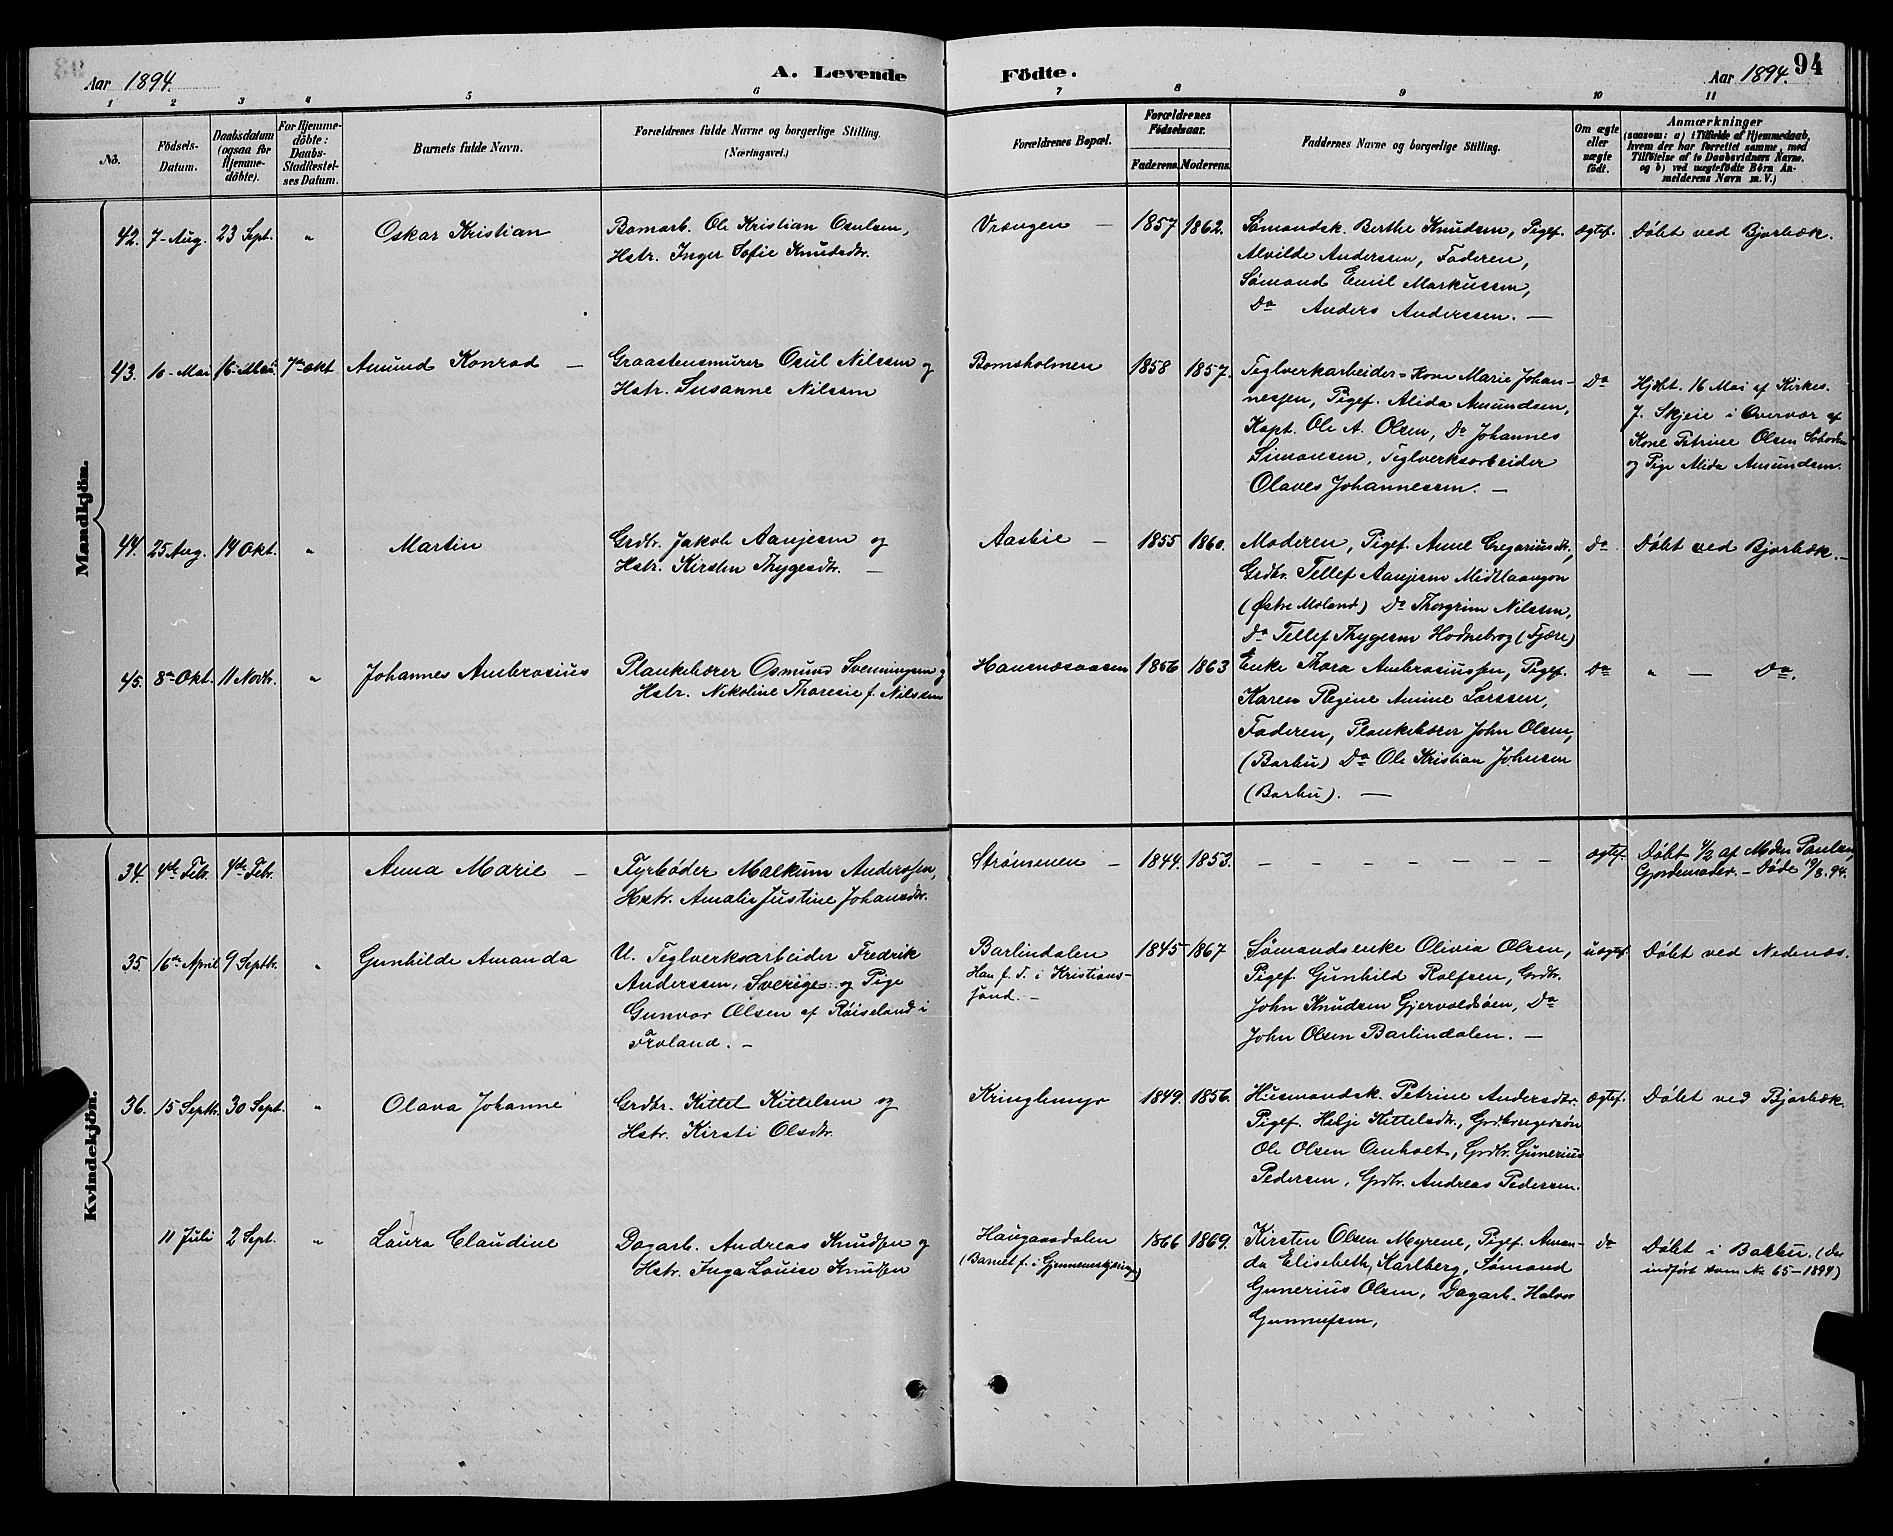 Aar 1894.
A. Levende
Födte.
Aar 1894.
94
1 2 3 4 5 6 7 8 9 10 11
No.
Födsels-
Datum.
Daabsdatum
(ogsaa for
Hjemme-
döbte).
For Hjemme-
döbte:
Daabs-
Stadfæstel-
ses Datum.
Barnets fulde Navn.
Forældrenes fulde Navne og borgerlige Stilling.
(Næringsvei.)
Forældrenes Bopæl.
Forældrenes
Födselsaar.
Faderens. Moderens.
Faddernes Navne og borgerlige Stilling.
Om ægte
eller
uægte
födt.
Anmærkninger
(saasom: a) i Tilfælde af Hjemmedaab,
hvem der har forrettet samme, med
Tilföielse af to Daabsvidners Navne.
og b) ved uægtefödte Börn An-
melderens Navn m. V.)
Mandkjön.
42. 7-Aug. 23 Sept. " Oskar Kristian
Bomarb. Ole Kristian Osulsen,
Hstr. Inger Sofie Knudsdtr.
Vrængen — 1857 1862.
Sømandsk. Berthe Knudsen, Pigef.
Alvilde Anderssen, Faderen,
Sømand Emil Markussen,
Do Anders Anderssen. —
ægtef. Døbt ved Bjorbæk.
43. 16-Mai 16-Mai 7de okt Amund Konrad —
Graastensmurer Osul Nilssen og
Hstr. Susanne Nilssen
Bomsholmen 1858 1857.
Teglverkarbeider-Kone Marie Johan-
nessen, Pigef. Alida Amundsen,
Kapt. Ole A. Olsen, Do Johannes
Simonsen, Teglverksarbeider
Olaves Johannessen. —
Do Hjdbt. 16 Mai af Kirkes.
J. Skjeie i Overvær af
Kone Petrine Olsen
og Pige Alida Amundsen.
44. 25 Aug. 14 Okt. " Martin
Grdbr. Jakob Aanjesen og
Hstr. Kirsten Thygesdtr. —
Aasbie — 1855 1860.
Moderen, Pigef. Anne Gregariusdtr,
Grdbr. Tellef Aanjesen Midtlaangon
(Østre Moland) Do Thorgrim Nilssen,
Do Tellef Thygesen Hodnebrog (Fjære)
Do Døbt ved Bjorbæk. —
45. 8de Okt. 11 Novbr. " Johannes Ambrosius
Plankebærer Osmund Svenningsen og
Hstr. Nikoline Thoresie f. Nilssen
Hansnæsaasen 1856 1863
Enke Thora Ambrosiussen, Pigef.
Karen Regine Amine Larssen,
Faderen, Plankebærer John Olsen,
(Barbu) Do Ole Kristian Johnsen
(Barbu). —
Do " — Do.
Kvindekjön.
34. 4de Feb. 4de Febr. Anna Marie —
Fyrbøder Malkum Anderssen,
Hstr. Amalie Justine Johansdtr.
Strømmen — 1844. 1853. — — — — — — —
ægtef. Døbt 4/2 af Mdm Paulsen,
Gjordemoder. — Døde 19/3. 94.
35. 16de April 9 Septbr. " Gunhilde Amanda
U. Teglverksarbeider Fredrik
Anderssen, Sverige og Pige
Gunvor Olsen af Røiseland i
Froland. —
Barlindalen
Han f. T. i Kristians-
sand. —
1845 1867
Sømandsenke Olivia Olsen,
Pigef. Gunhild Rolfsen, Grdbr.
John Knudsen Gjervoldsøen, Do
John Olsen Barlindalen. —
uægtef. Døbt ved Nedenæs.
36. 15 Septbr. 30 Sept. " Olava Johanne
Grdbr. Kittel Kittelsen og
Hstr. Kirsti Olsdtr.
Kringlemyr 1849. 1856.
Husmandsk. Petrine Andersdtr.
Pigef. Helje Kittelsdtr., Grdbrugersøn
Ole Olsen Omholt, Grdbr. Gunerius
Pedersen, Grdbr. Andreas Pedersen.
ægtef. Døbt ved Bjorbæk.
11 Juli 2 Sept. " Laura Claudine
Dagarb. Andreas Knudsen og
Hstr. Inga Louise Knudsen
Haugaasdalen
(Barnet f. i )
1866 1869.
Kirsten Olsen Myrene, Pigef. Aman-
da Elisebeth Karlberg, Sømand
Gunerius Olsen, Dagarb. Halvor
Gunnufsen,
do Døbt i Barbu. (Der
indført som No 65—1894)